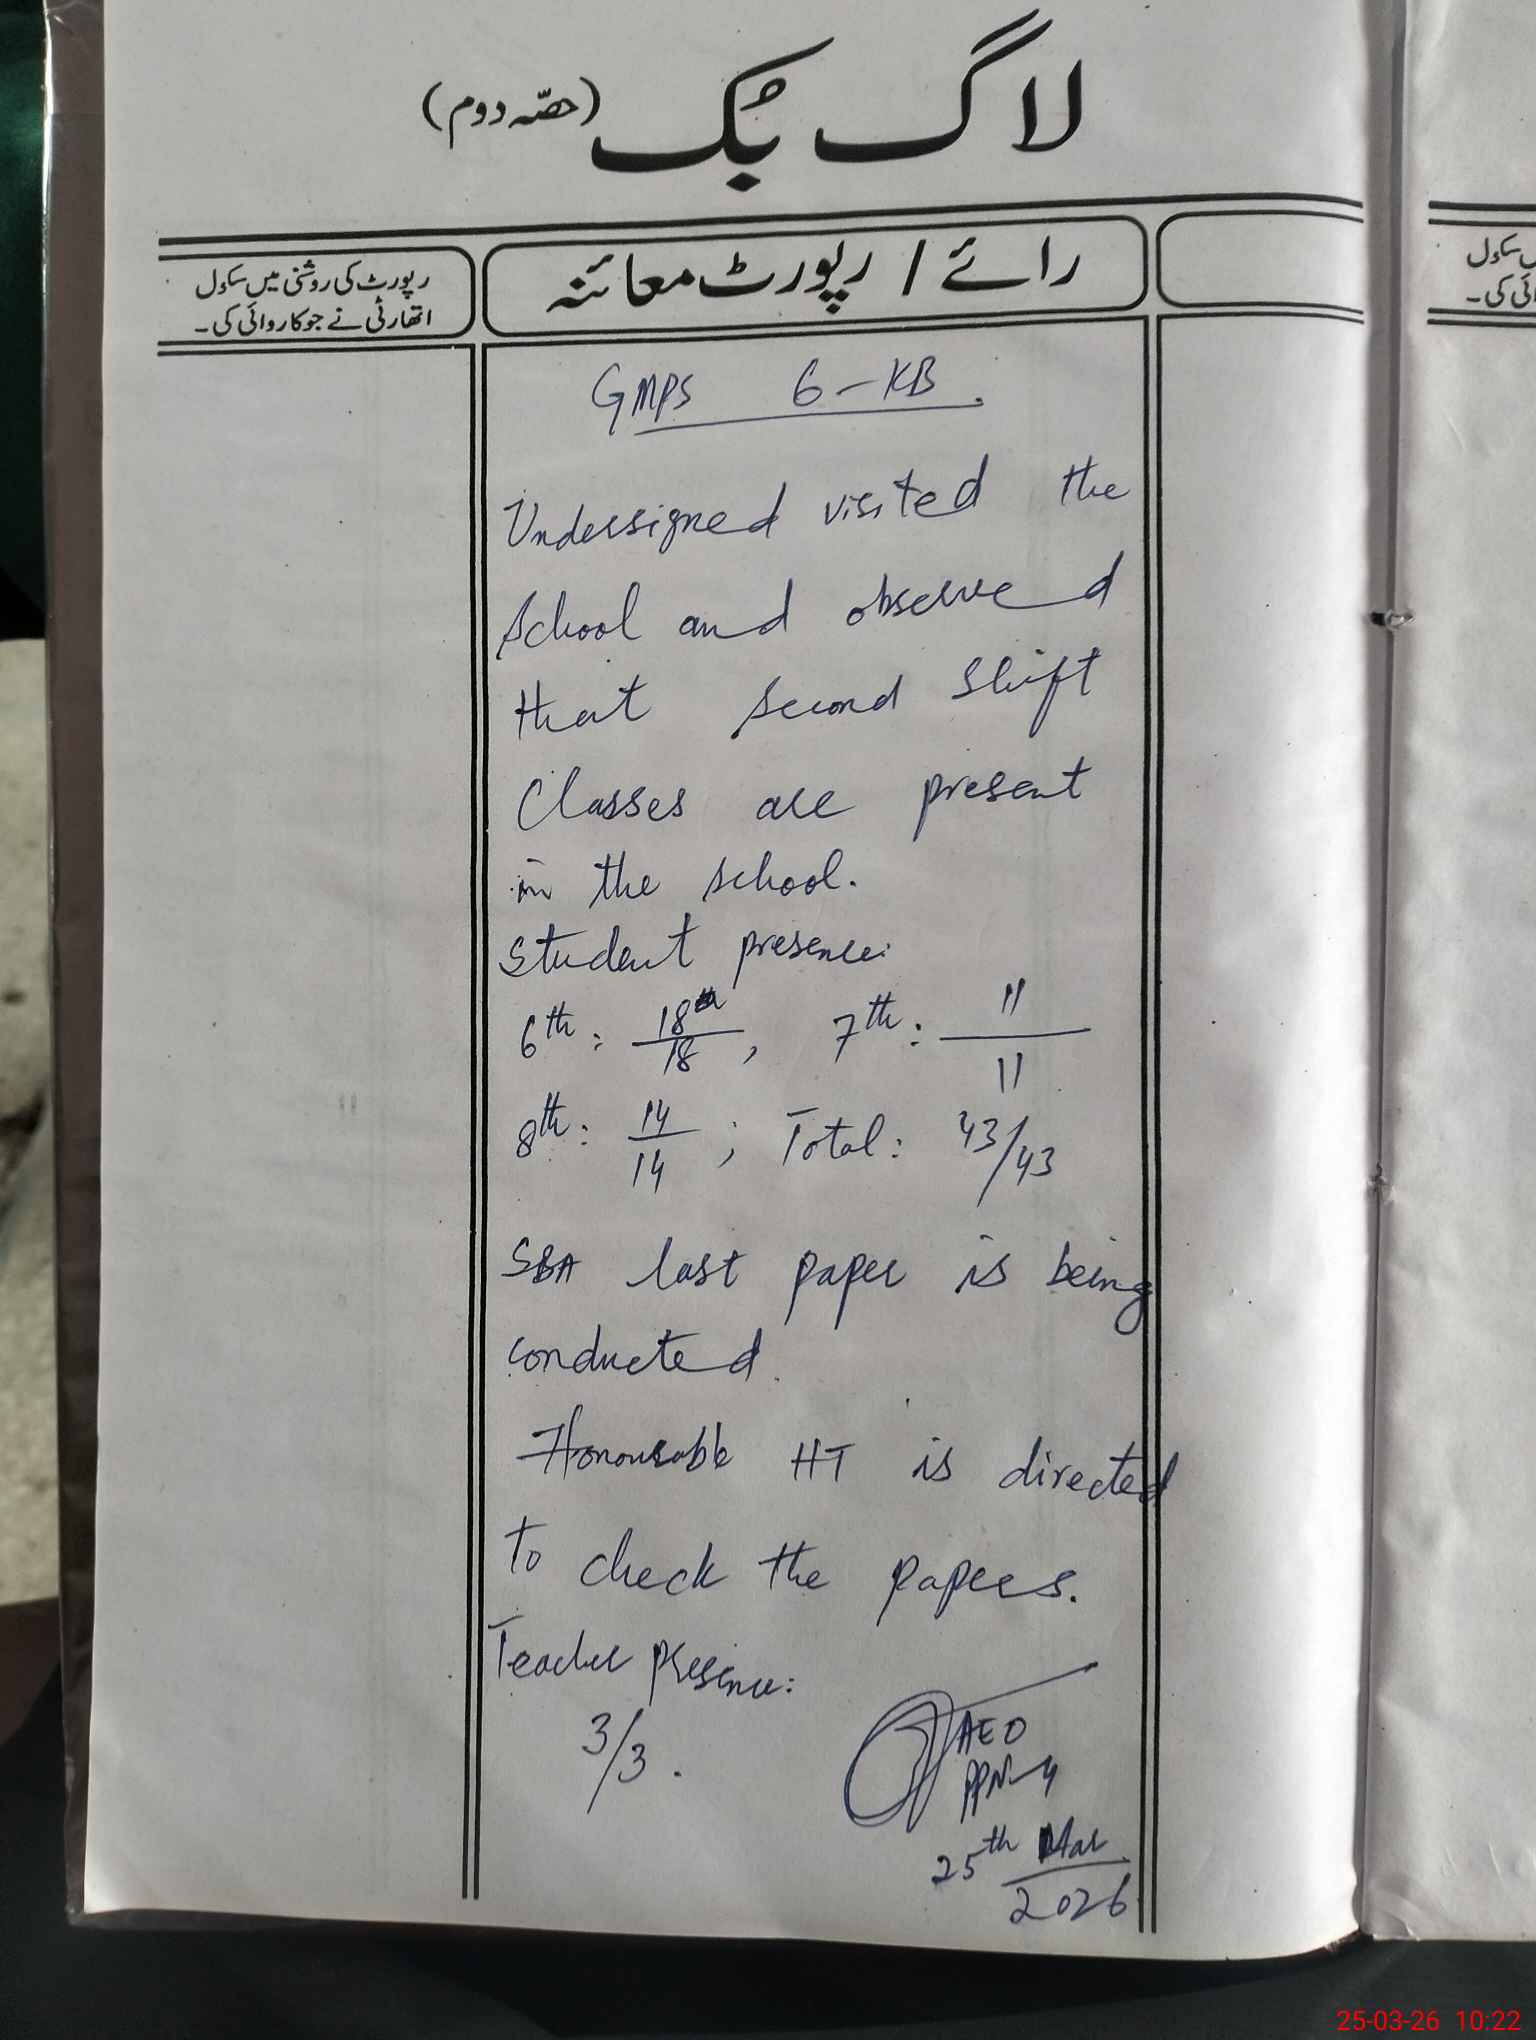 لاگ بُک (حصّہ دوم)
رپورٹ کی روشنی میں سکول
اتھارٹی نے جو کاروائی کی۔
رائے / رپورٹ معائنہ
GMPS 6-KB.
Undersigned visited the
School and observed
that second shift
Classes are present
in the school.
Student presence:
6th: 18th/18, 7th: 11/11
8th: 14/14; Total: 43/43
SBA last paper is being
conducted.
Honourable HT is directed
to check the papers.
Teacher presence:
3/3.
AEO
PPN-4
25th Mar
2026
سکول
کی۔
25-03-26 10:22